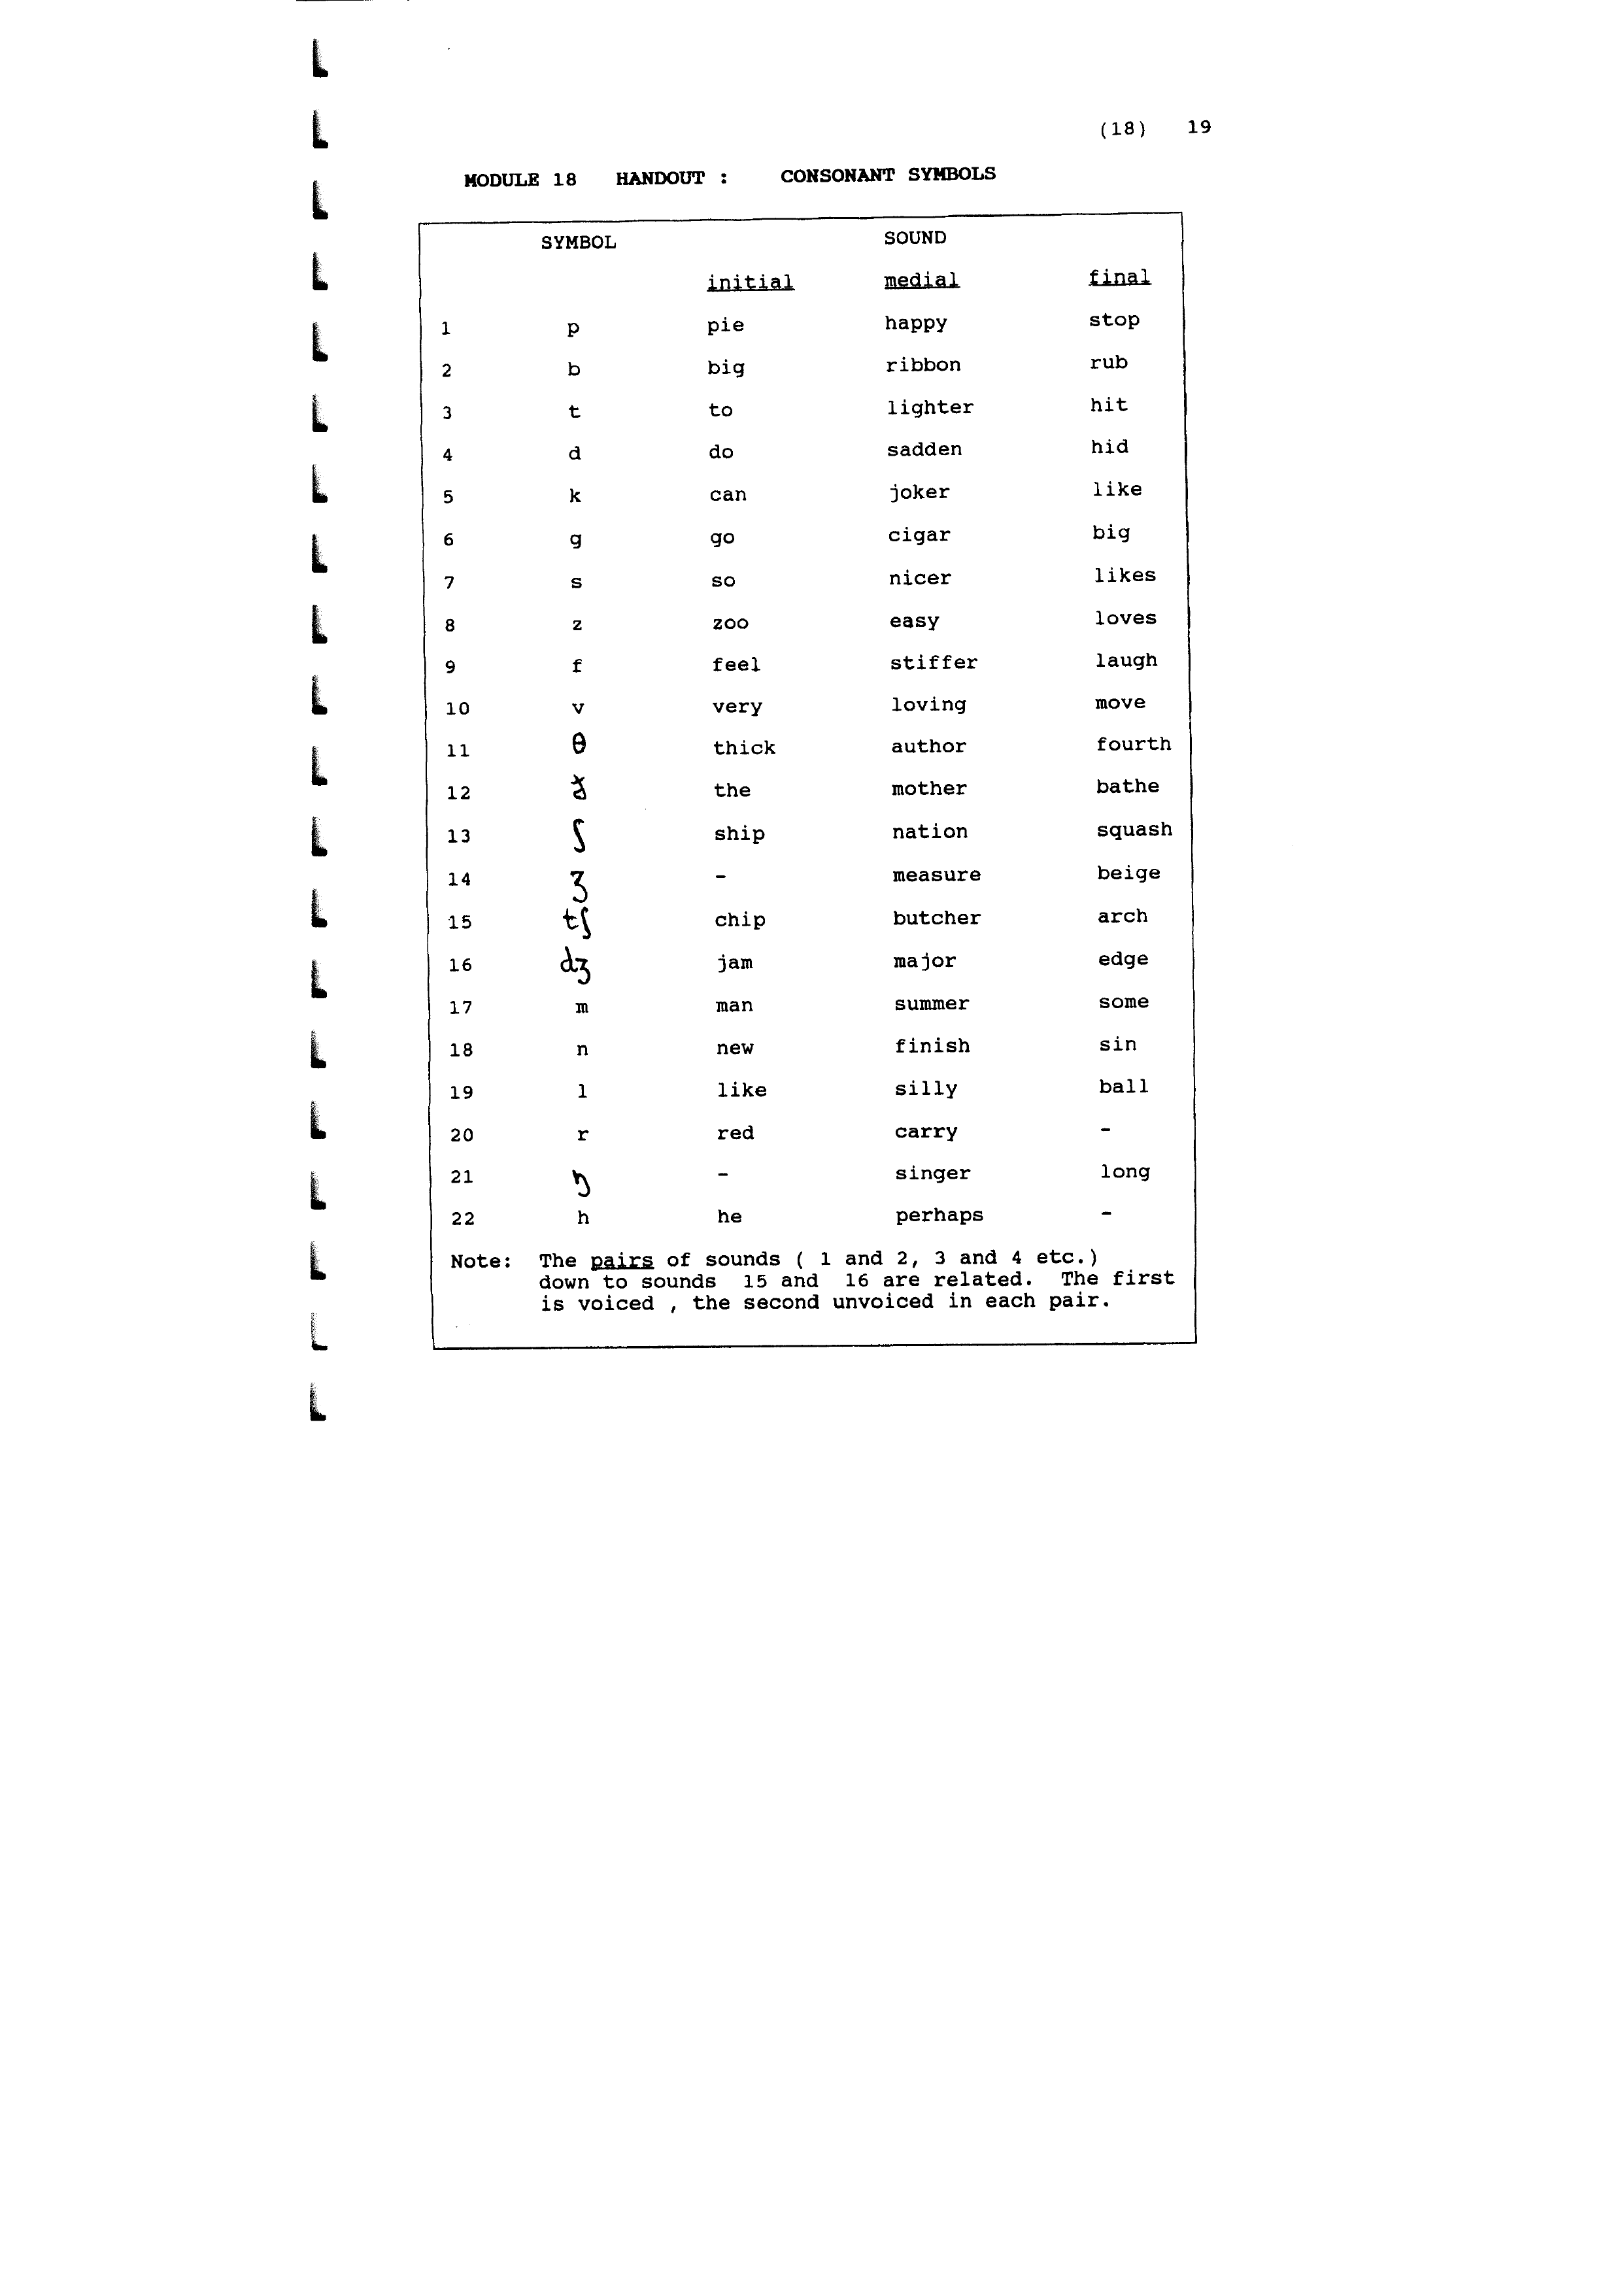 (18) 19
MODULE 18 HANDOUT : CONSONANT SYMBOLS
SYMBOL SOUND
initial medial final
1 p pie happy stop
2 b big ribbon rub
3 t to lighter hit
4 d do sadden hid
5 k can joker like
6 g go cigar big
7 s so nicer likes
8 z zoo easy loves
9 f feel stiffer laugh
10 v very loving move
11 θ thick author fourth
12 ð the mother bathe
13 ʃ ship nation squash
14 ʒ - measure beige
15 tʃ chip butcher arch
16 dʒ jam major edge
17 m man summer some
18 n new finish sin
19 l like silly ball
20 r red carry -
21 ŋ - singer long
22 h he perhaps -
Note: The pairs of sounds ( 1 and 2, 3 and 4 etc.)
down to sounds 15 and 16 are related. The first
is voiced , the second unvoiced in each pair.